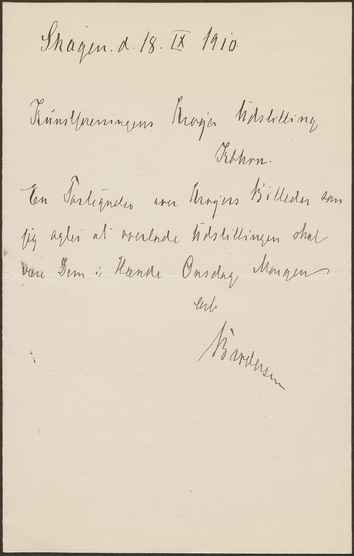 Skagen. d. 18. IX 1910
Kunstforeningens Krøyer Udstilling
Kbhvn.
En Fortegnelse over Krøyers Billeder som
jeg agter at overlade Udstillingen skal
være Dem i Hænde Onsdag Morgen
ærb